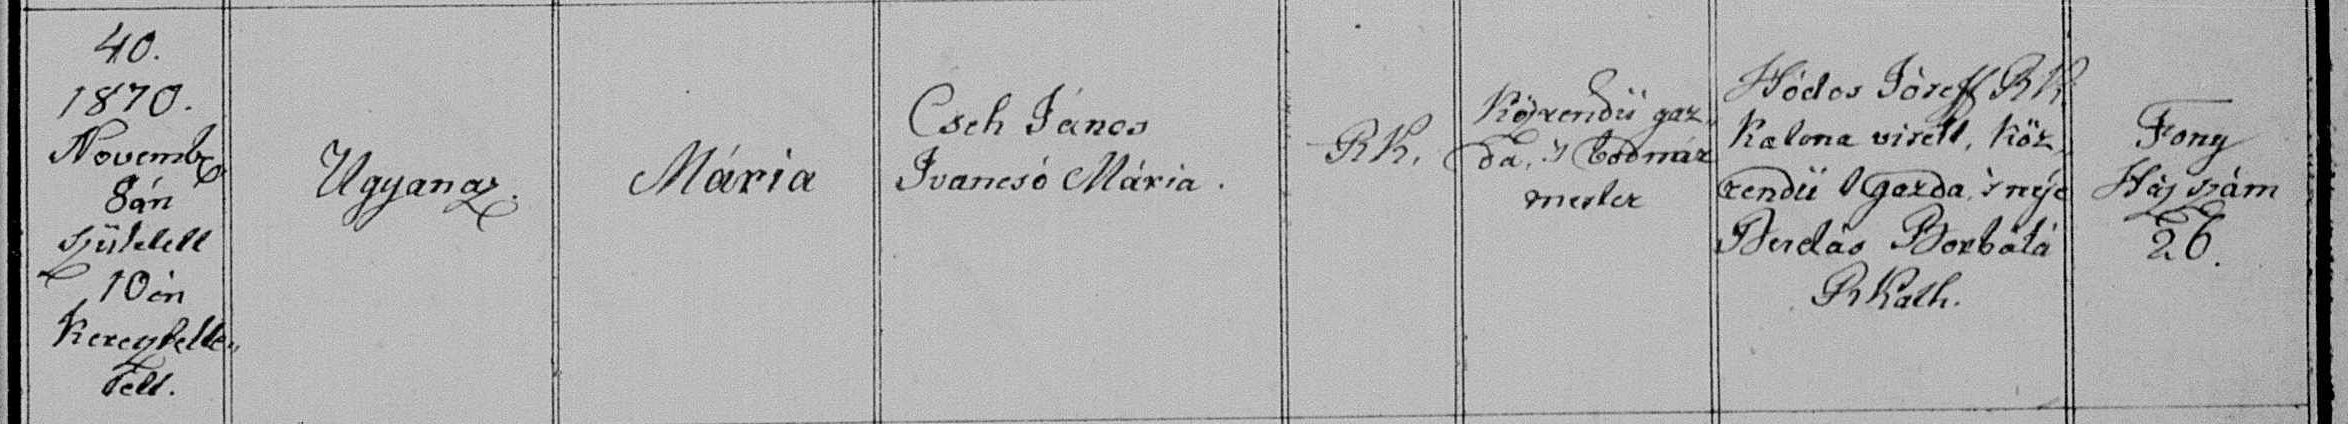 40.
1870.
Novemb.
8án
született
10én
Keresztelte„
telt.
Ugyanaz.
Mária
Cseh János
Ivancsó Mária.
RK.
Közrendü gaz„
da, 's
mester
Hódos Jóseff RK.
Katona viselt, köz„
rendü Gazda, 's neje
Berdás Borbálá
RKath.
Fony
Ház szám
26.